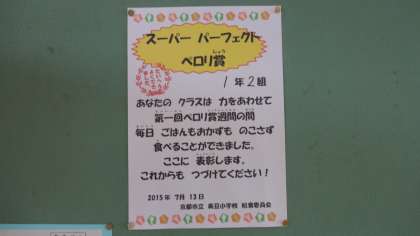 スーパー パーフェクト
ペロリ賞
しょう
1年2組
あなたの クラスは 力をあわせて
第一回ペロリ賞週間の間
毎日 ごはんもおかずも のこさず
食べることができました。
ここに 表彰します。
これからも つづけてください!
2015年 7月 13日
京都市立 美豆小学校 給食委員会